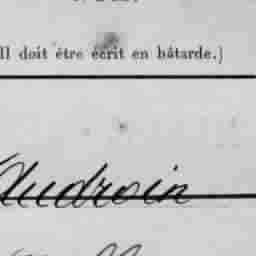 ll doit être écrit en bâtarde.)
Audroin